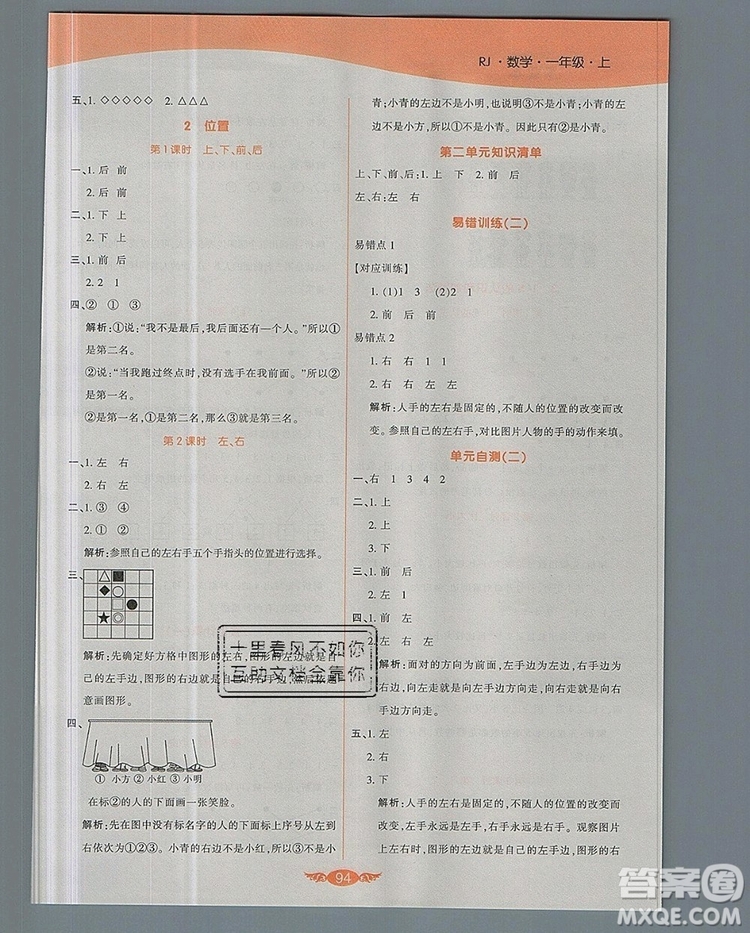 RJ·数学·一年级·上
五、1. ◇◇◇◇◇ 2. △△△
2 位置
第1课时 上、下、前、后
一、1. 后 前
2. 后 前
二、1. 下 上
2. 下 上
三、1. 前 后
2. 2 1
四、② ① ③
解析:①说:“我不是最后,我后面还有一个人。”所以①
是第二名。
②说:“当我跑过终点时,没有选手在我前面。”所以②
是第一名。
②是第一名,①是第二名,那么③就是第三名。
第2课时 左、右
一、1. 左 右
2. 右 左
二、1. ① ④
2. ③ ④
解析:参照自己的左右手五个手指头的位置进行选择。
三、
解析:先确定好方格中图形的左右,图形的左边就是自
己的左手边,图形的右边就是自己的右手边,然后依题
意画图形。
四、
① 小方 ② 小红 ③ 小明
在标②的人的下面画一张笑脸。
解析:先在图中没有标名字的人的下面标上序号从左到
右依次为①②③。小青的右边不是小红,所以③不是小
青;小青的左边不是小明,也说明③不是小青;小青的
左边不是小方,所以①不是小青。因此只有②是小青。
第二单元知识清单
上、下、前、后:1. 上 下 2. 前 后
左、右:左 右
易错训练(二)
易错点1
【对应训练】
1. (1)1 3 (2)2 1
2. 前 后 前
易错点2
1. 右 右 1 1
2. 右 右 左 左
解析:人手的左右是固定的,不随人的位置的改变而改
变。参照自己的左右手,对比图片人物的手的动作来填。
单元自测(二)
一、右 1 3 4 2
二、1. 上
2. 上
3. 下
三、1. 前 后
2. 左 1
四、1. 上
2. 右 左 左
解析:面对的方向为前面,左手边为左边,右手边为右
边,向左走就是向左手边方向走,向右走就是向右手
边方向走。
五、1. 左
2. 右
3. 下
解析:人手的左右是固定的,不随人的位置的改变而改
变,左手永远是左手,右手永远是右手。观察图片
上左右时,图形的左边就是左手边,图形的右边就是右
94
十里春风不如你
互助文档会靠你
答案圈
MXQE.COM